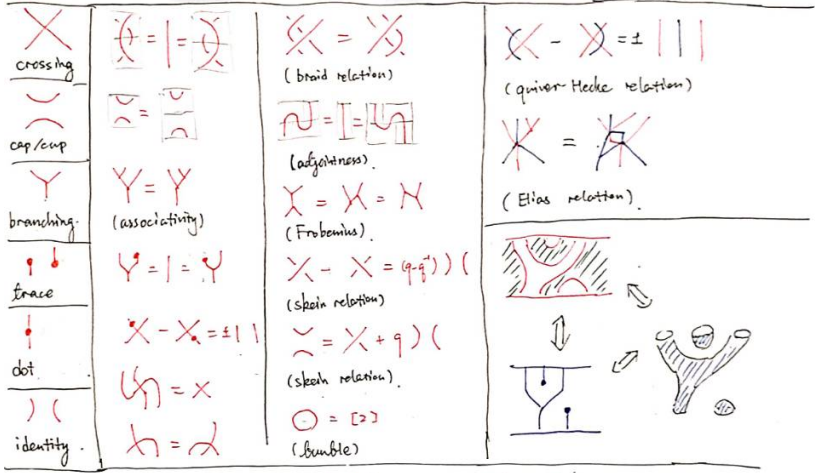 crossing
cap/cup
branching.
trace
dot.
identity.
(associativity)
= ± | |
(braid relation)
(adjointness).
(Frobenius).
= (q-q⁻¹) ) (
(skein relation)
+ q ) (
(skein relation).
= [2]
(bunble)
= ± | | |
(quiver Hecke relation)
(Elias relation).